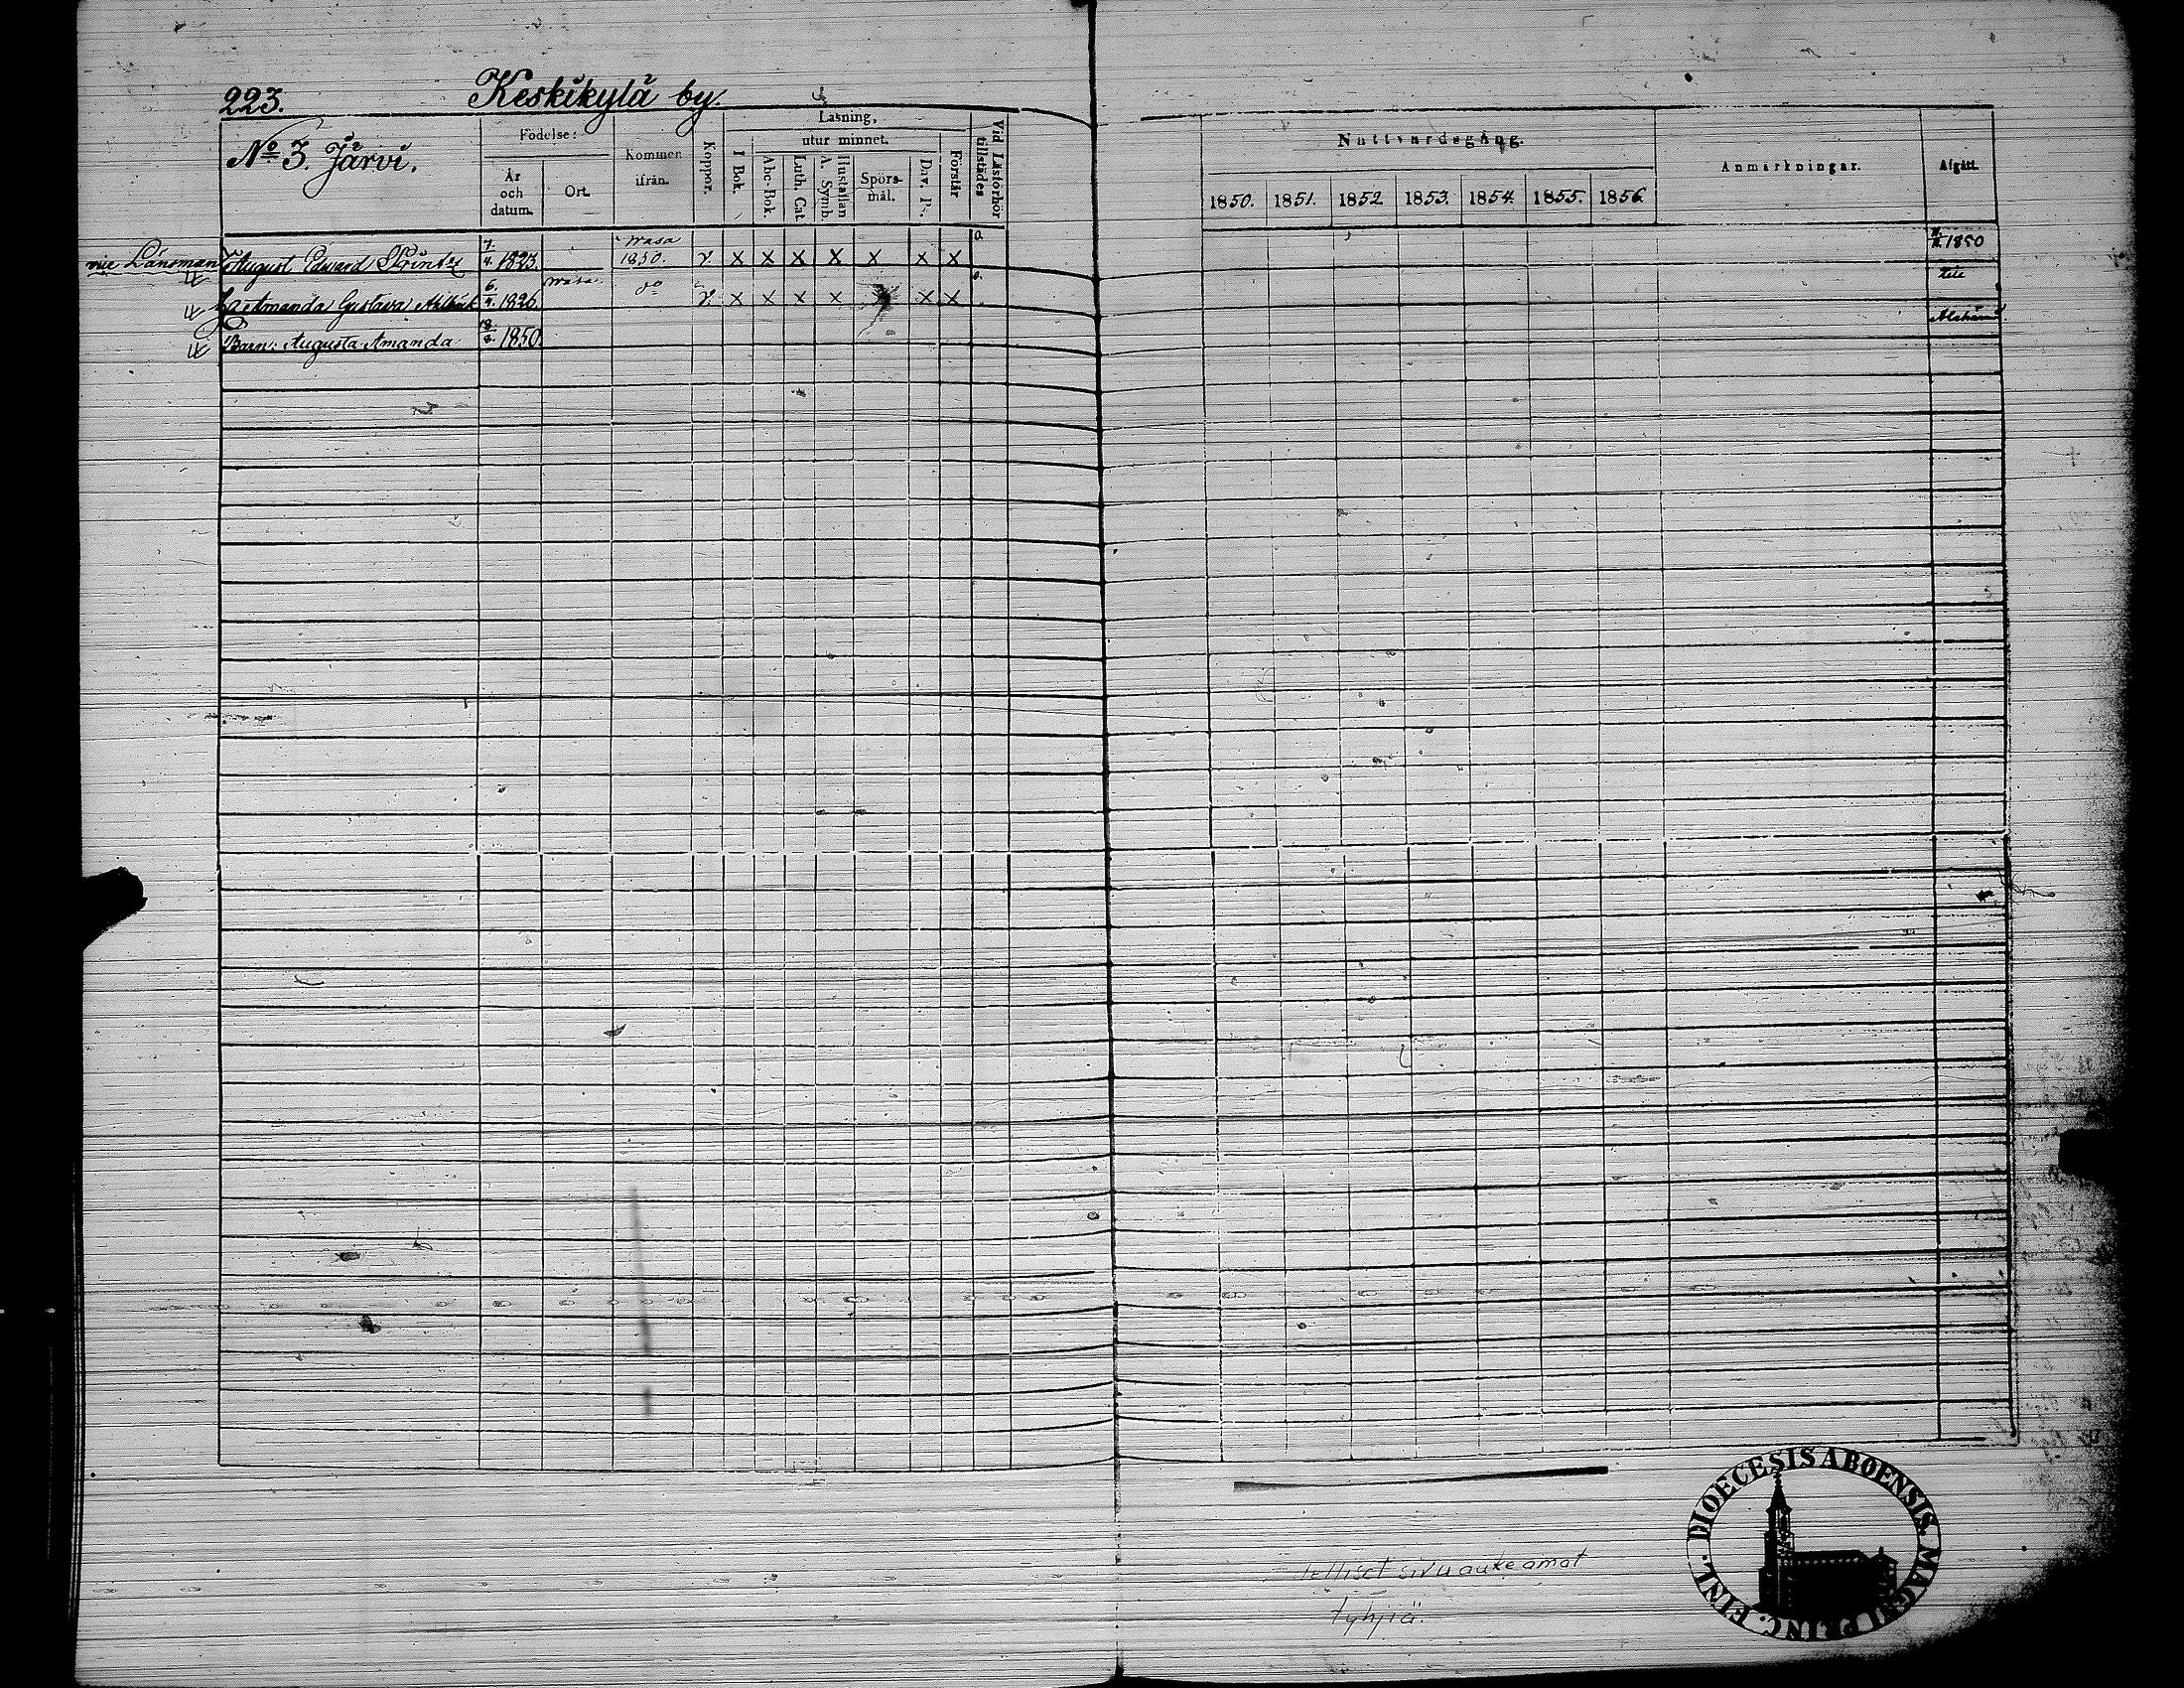 223. Keskikylä by.
No 3. Järvi.
Födelse:
År och datum.
Ort.
Kommen ifrån.
Koppor.
Läsning,
I Bok.
utur minnet.
Abc-Bok.
Luth. Cat.
A. Symb.
Hustaflan
Spörsmål.
Dav. Ps.
Förstår
Vid Läsförhör tillstädes
Nattvardsgång.
1850. 1851. 1852. 1853. 1854. 1855. 1856.
Anmärkningar.
Afgått.
vice Länsman August Edvard 7/4. 1823. Wasa 1850. v x x x x x x x 0. 1850
Amanda Gustava 6/4. 1826. Wasa. do v x x x x x x 0.
Barn: Augusta Amanda 1850
sivuaukeamat
tyhjiä.
DIOECESIS ABOENSIS. MAGNI PRINC. FINL.